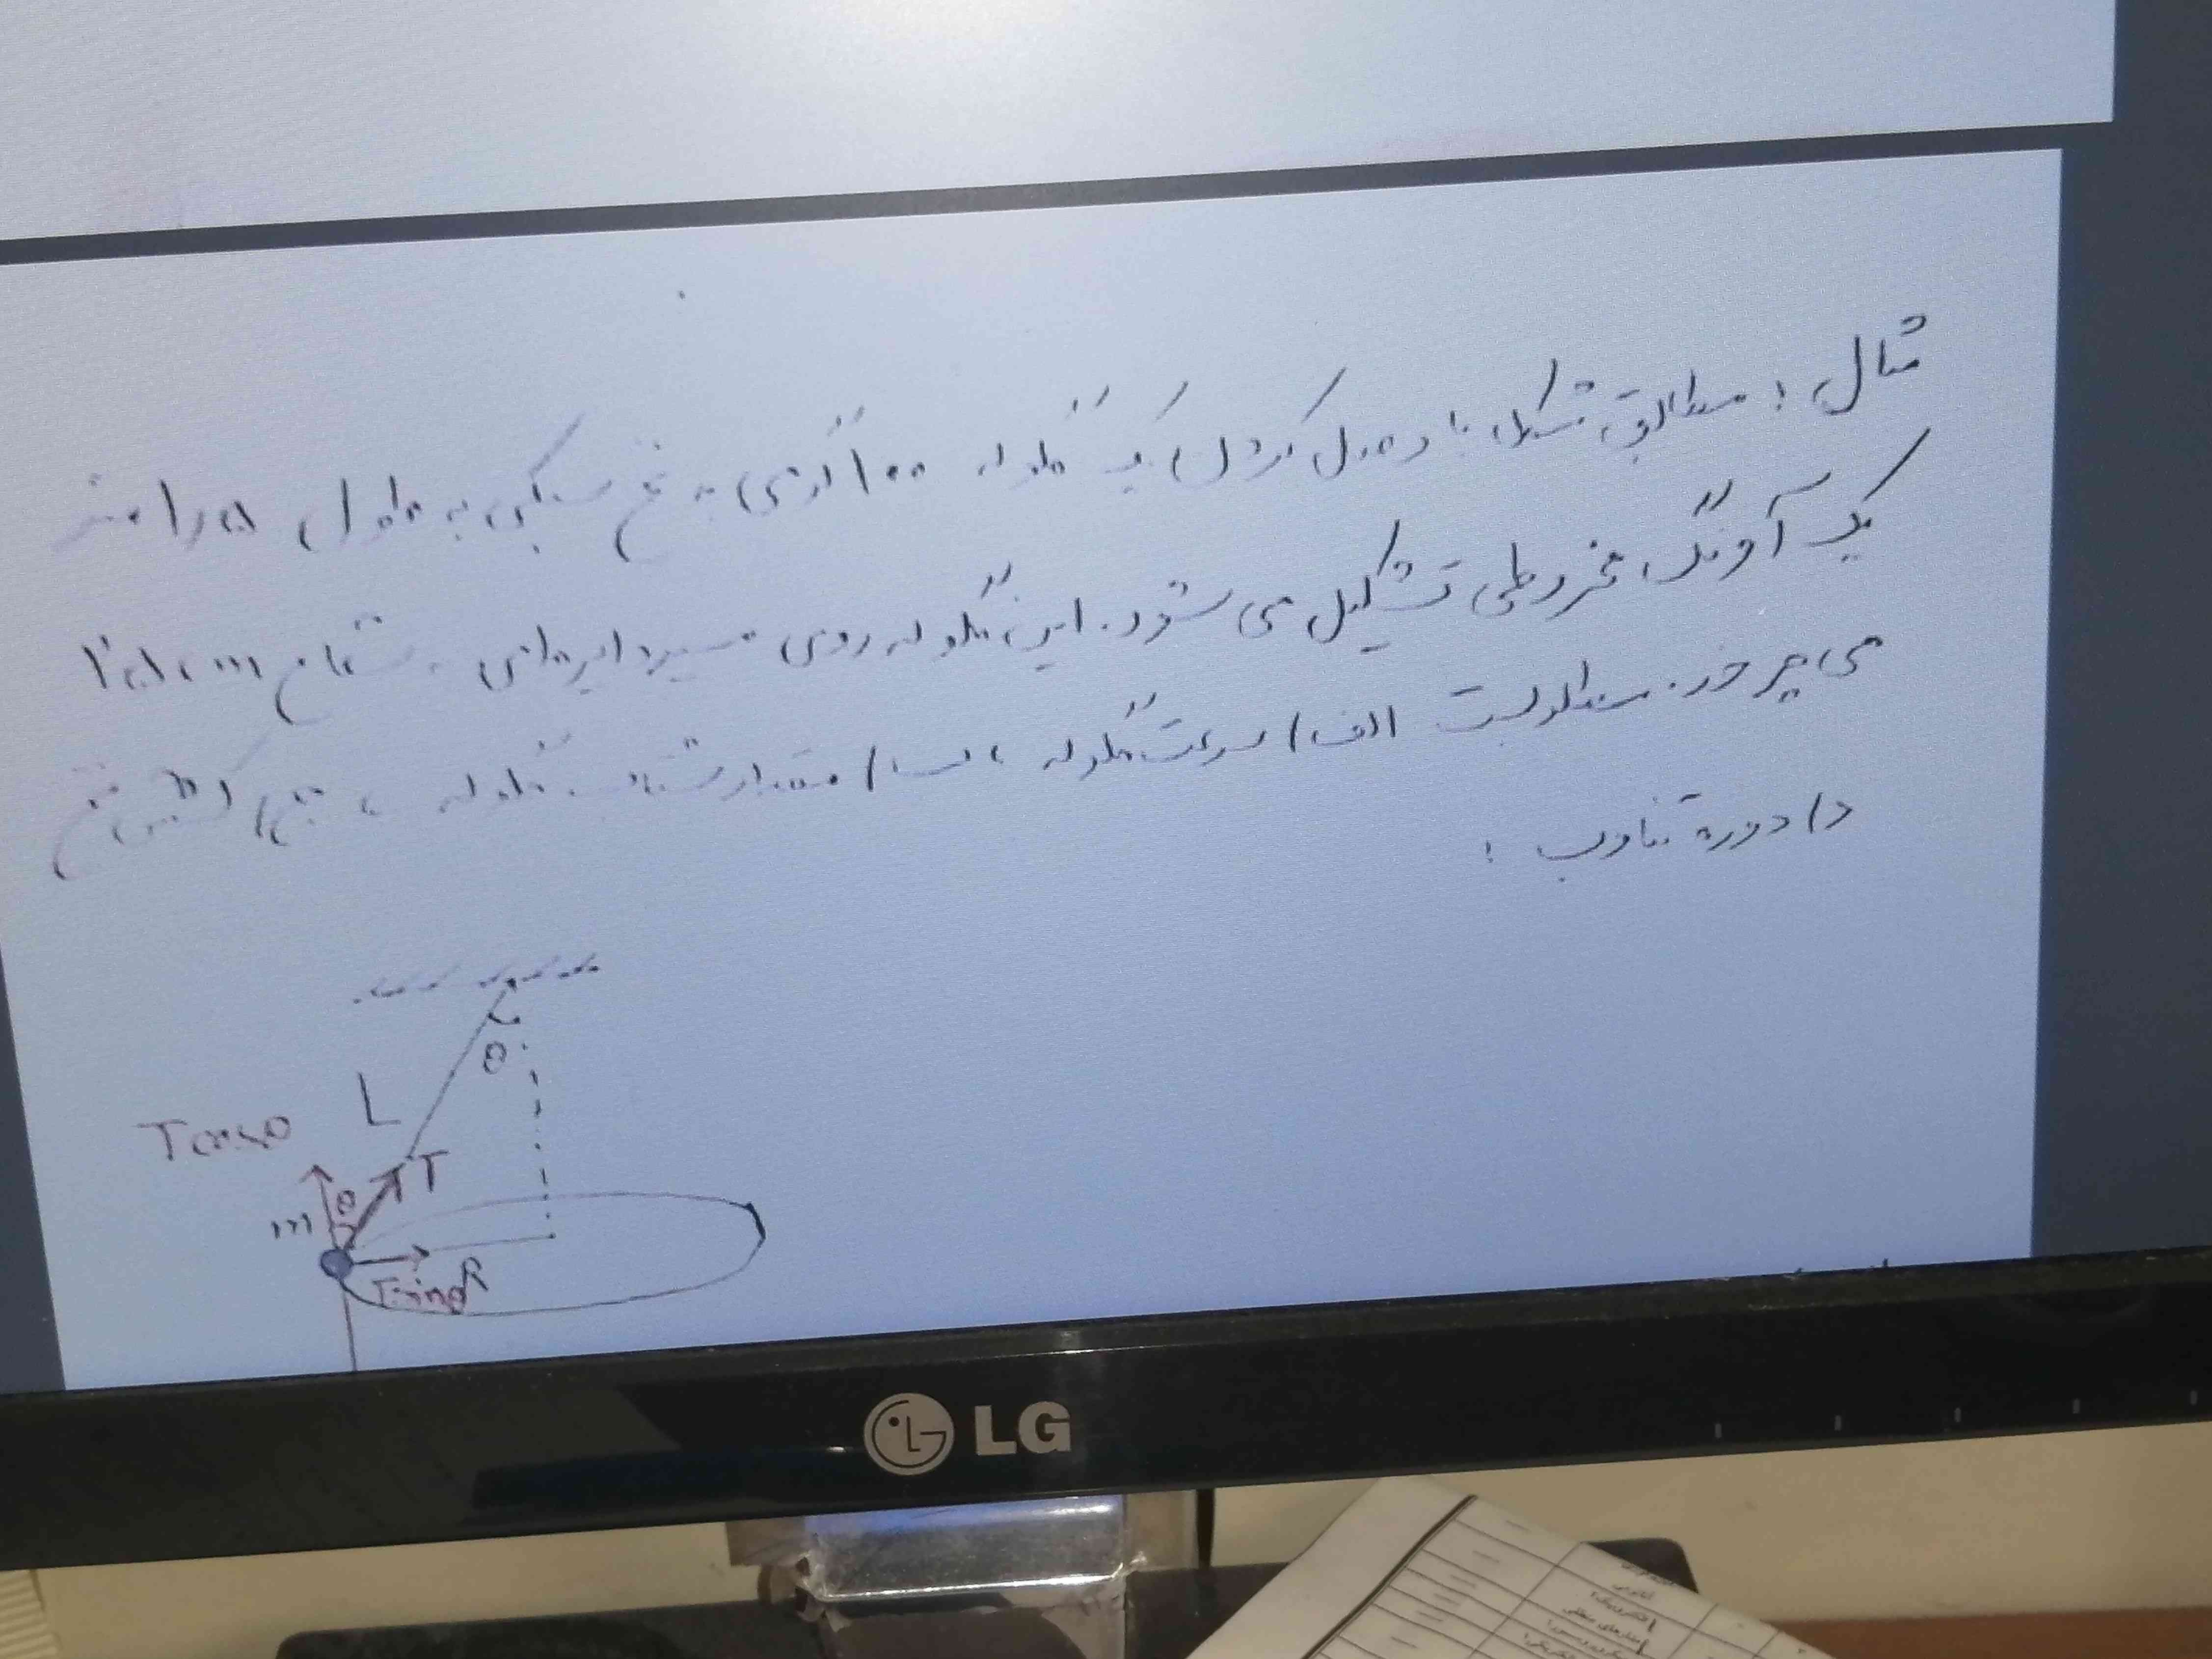 مثال : مطابق شکل با وصل کردن یک گلوله ۱۰۰ گرمی به نخ سبکی به طول ۱٫۵ متر
یک آونگ مخروطی تشکیل می شود. این گلوله روی مسیر دایره‌ای به شعاع
می چرخد. مطلوبست الف) سرعت گلوله ، ب) مقدار شتاب گلوله ، ج) کشش نخ
د) دوره تناوب :
θ
L
T cosθ
T
θ
m
T sinθ R
LG